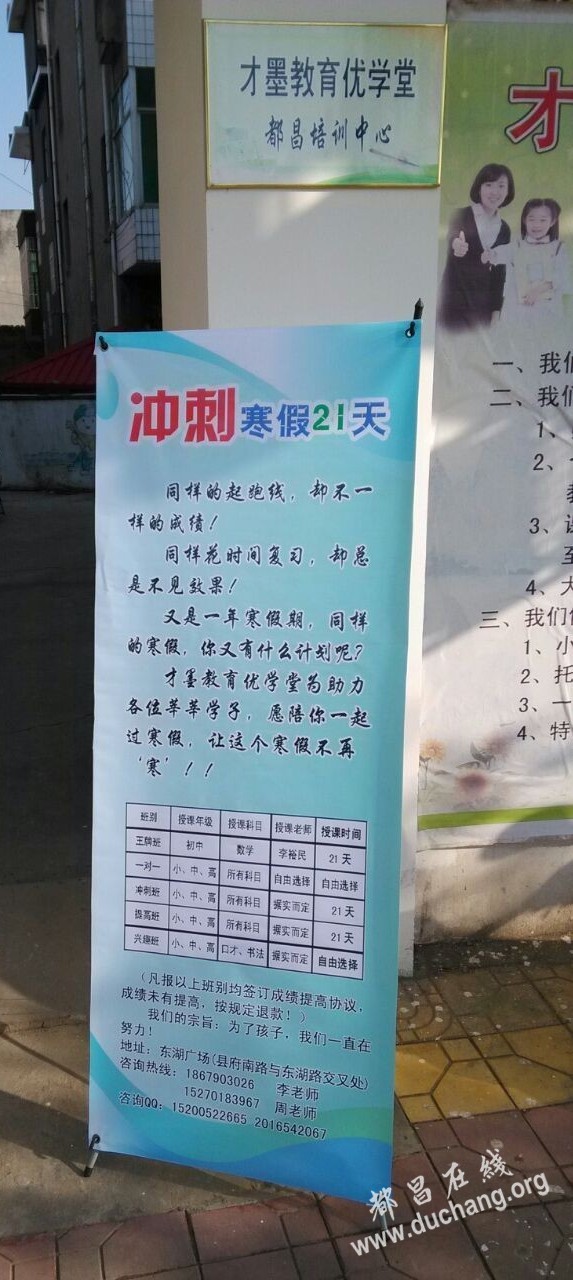 才墨教育优学堂
都昌培训中心
才
冲刺寒假21天
同样的起跑线，却不一
样的成绩！
同样花时间复习，却总
是不见效果！
又是一年寒假期，同样
的寒假，你又有什么计划呢？
才墨教育优学堂为助力
各位莘莘学子，愿陪你一起
过寒假，让这个寒假不再
‘寒’！！
班别 授课年级 授课科目 授课老师 授课时间
王牌班 初中 数学 李裕民 21天
一对一 小、中、高 所有科目 自由选择 自由选择
冲刺班 小、中、高 所有科目 据实而定 21天
提高班 小、中、高 所有科目 据实而定 21天
兴趣班 小、中、高 口才、书法 据实而定 自由选择
（凡报以上班别均签订成绩提高协议，
成绩未有提高，按规定退款！）
我们的宗旨：为了孩子，我们一直在
努力！
地址：东湖广场(县府南路与东湖路交叉处)
咨询热线：1867903026 李老师
15270183967 周老师
咨询QQ：15200522665 2016542067
一、我们
二、我们
1、
2、
教
3、课
至
4、大
三、我们
1、小
2、托
3、一
4、特
都昌在线
www.duchang.org